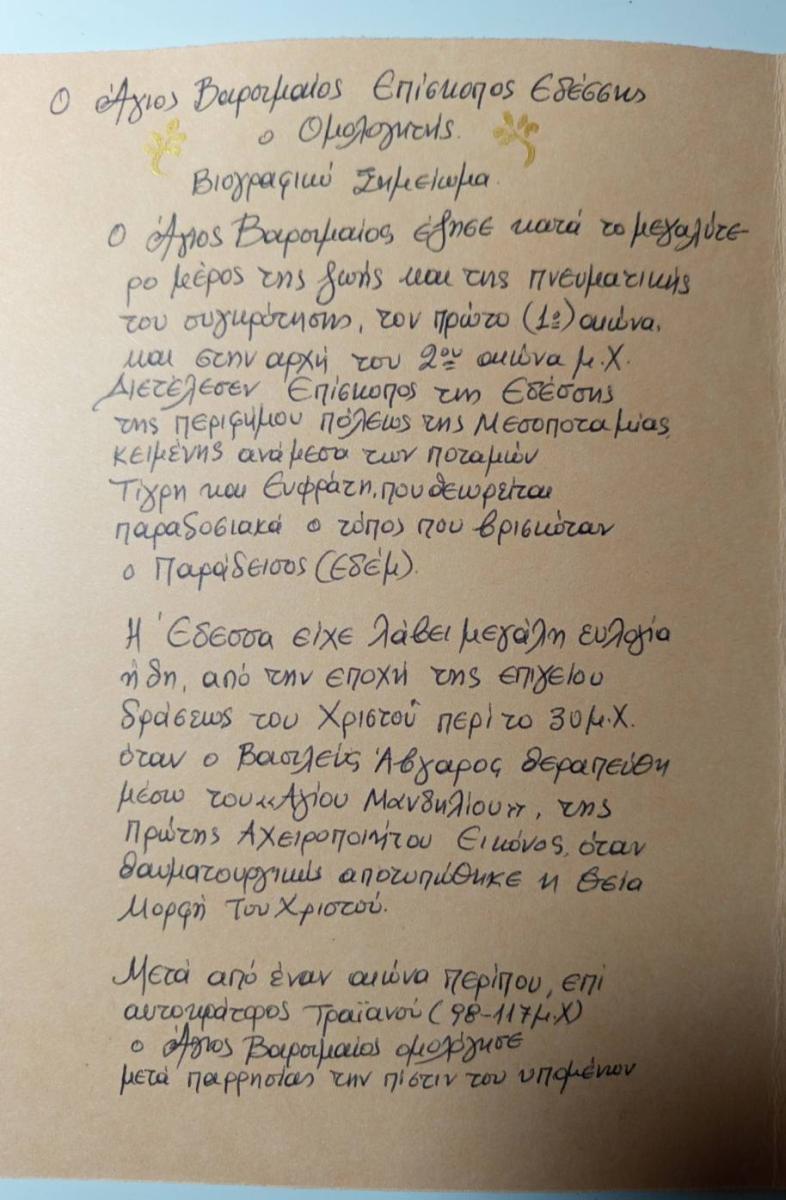 Ο Άγιος Βαρσιμαίος Επίσκοπος Εδέσσης
ο Ομολογητής.
Βιογραφικό Σημείωμα.
Ο Άγιος Βαρσιμαίος έζησε κατά το μεγαλύτε-
ρο μέρος της ζωής και της πνευματικής
του συγκρότησης, τον πρώτο (1ο) αιώνα.
και στην αρχή του 2ου αιώνα μ.Χ.
Διετέλεσεν Επίσκοπος της Εδέσσης
της περιφήμου πόλεως της Μεσοποταμίας,
κειμένης ανάμεσα των ποταμών
Τίγρη και Ευφράτη, που θεωρείται
παραδοσιακά ο τόπος που βρισκόταν
ο Παράδεισος (Εδέμ).
Η Έδεσσα είχε λάβει μεγάλη ευλογία
ήδη, από την εποχή της επιγείου
δράσεως του Χριστού περί το 30 μ.Χ.
όταν ο Βασιλεύς Άβγαρος θεραπεύθη
μέσω του «Αγίου Μανδηλίου», της
Πρώτης Αχειροποιήτου Εικόνος, όταν
θαυματουργικώς αποτυπώθηκε η Θεία
Μορφή Του Χριστού.
Μετά από έναν αιώνα περίπου, επί
αυτοκράτορος Τραϊανού (98-117μ.Χ)
ο Άγιος Βαρσιμαίος ομολόγησε
μετά παρρησίας την πίστιν του υπομένων